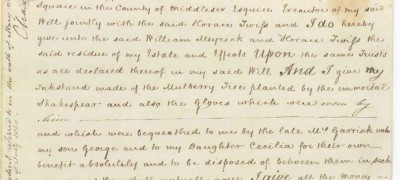 Square in the County of Middlesex Esquire Executors of my said
Will jointly with the said Horace Twiss and I do hereby
give unto the said William Meyrick and Horace Twiss the
said residue of my Estate and Effects Upon the same Trusts
as are declared thereof in my said Will And I give my
Inkstand made of the Mulberry Tree planted by the immortal
Shakespear and also the Gloves which were worn by
him
and which were bequeathed to me by the late Mrs Garrick unto
my son George and to my Daughter Cecilia for their own
benefit absolutely and to be disposed of between them in such
I give all the money